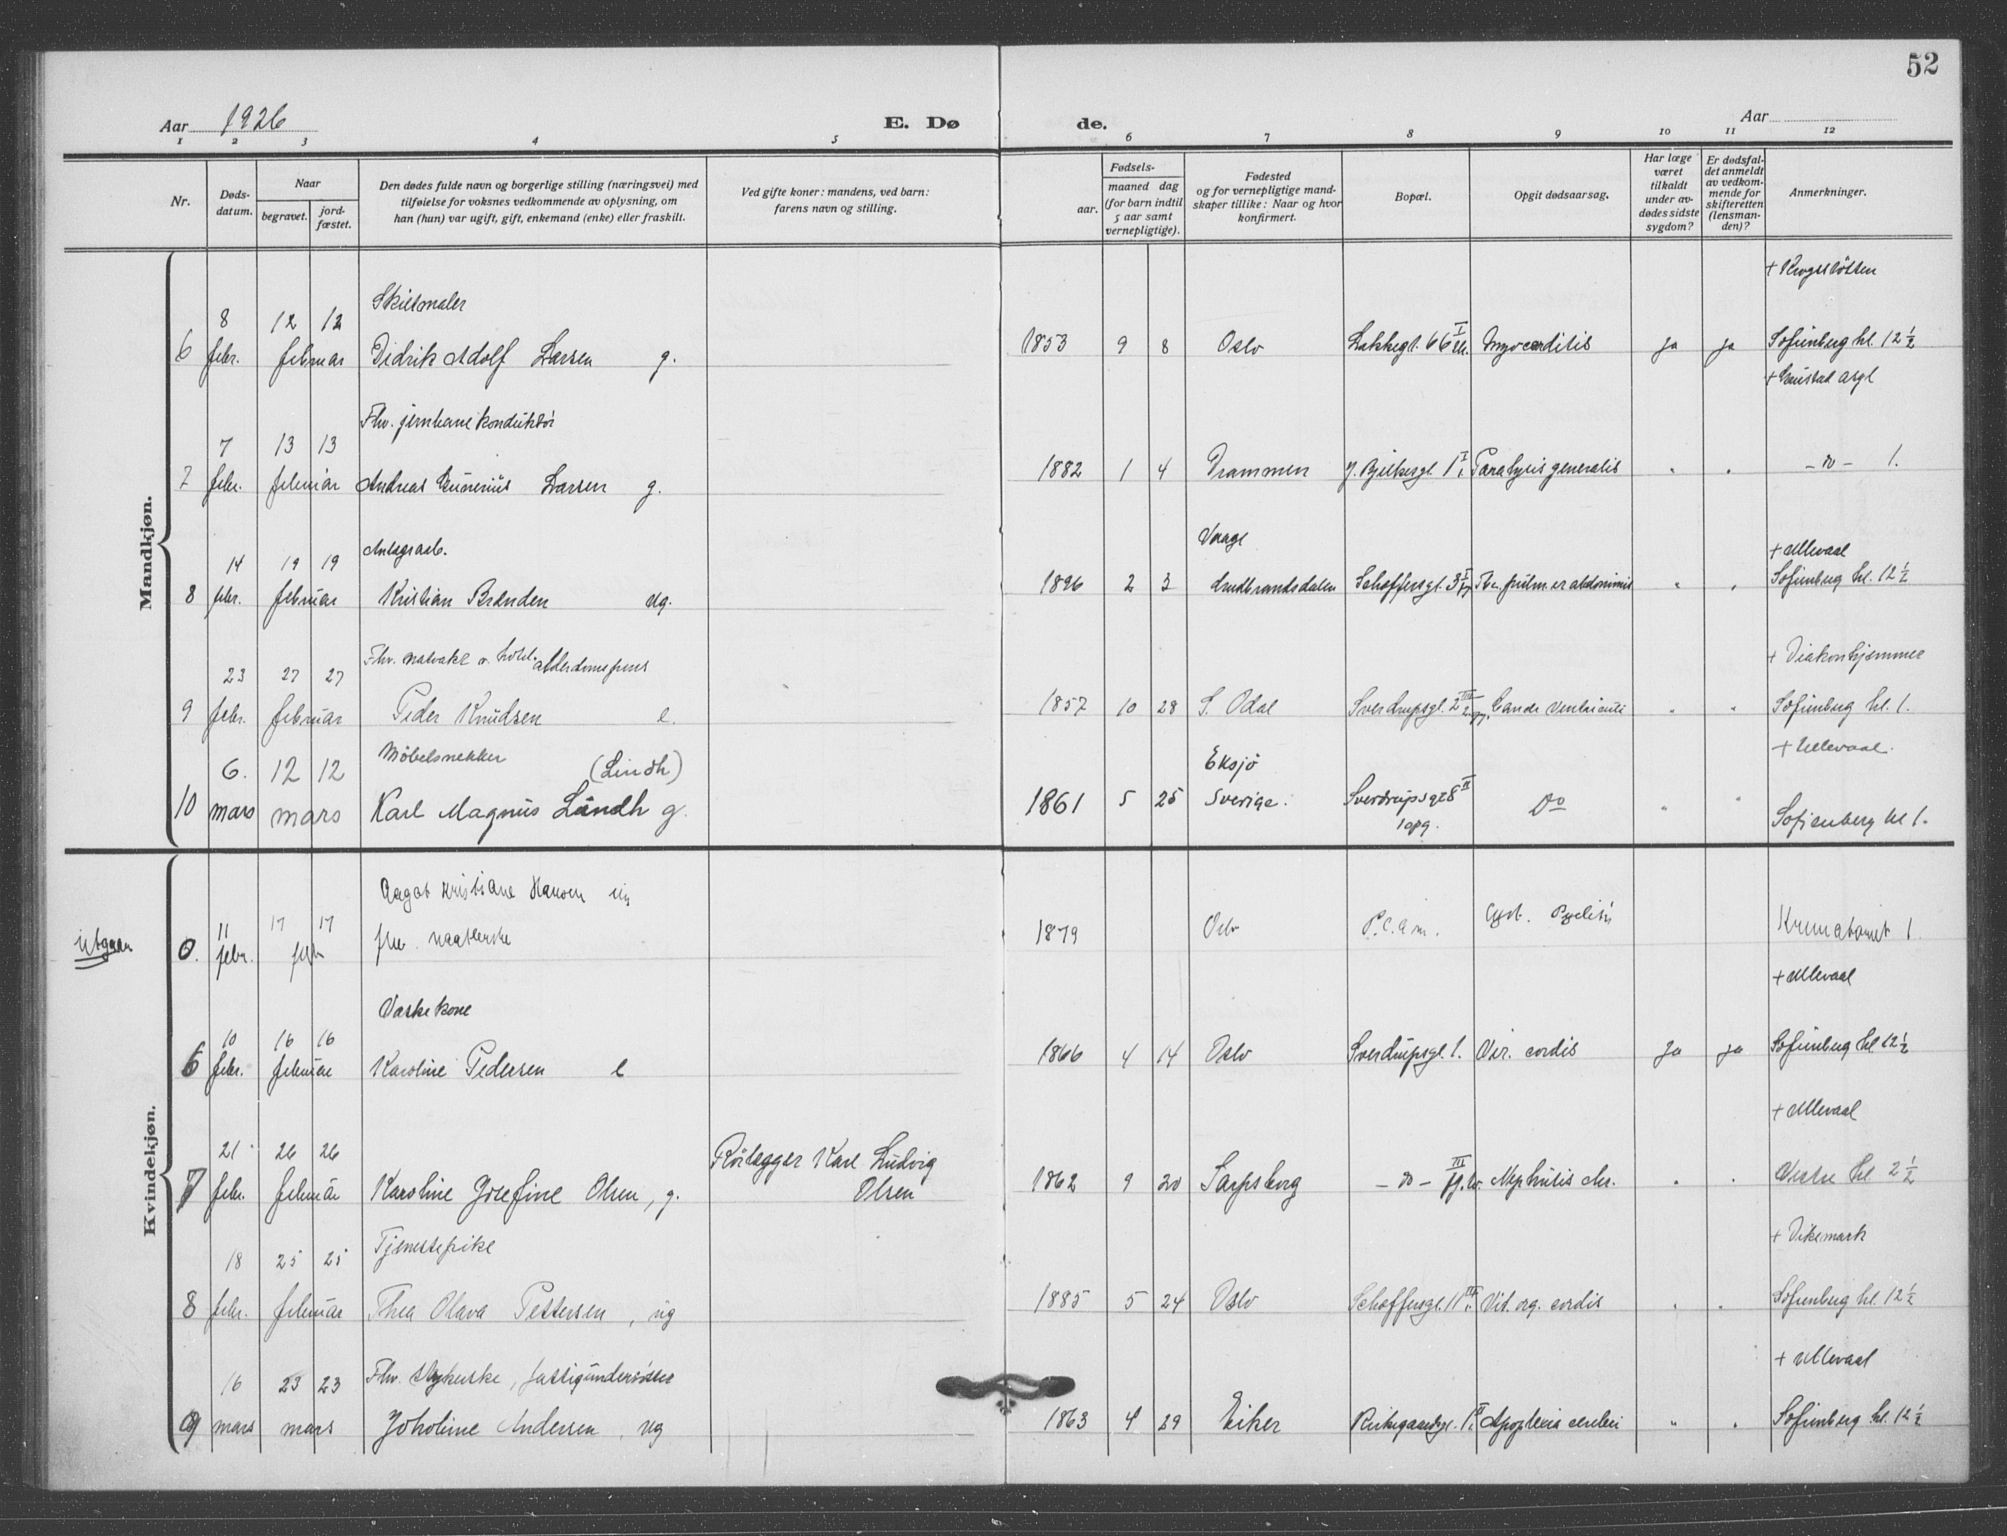 52
Aar 1926
E. Dø
de.
Aar
1 2 3 4 5 6 7 8 9 10 11 12
Nr.
Døds-
datum.
Naar
begravet.
jord-
fæstet.
Den dødes fulde navn og borgerlige stilling (næringsvei) med
tilføielse for voksnes vedkommende av oplysning, om
han (hun) var ugift, gift, enkemand (enke) eller fraskilt.
Ved gifte koner: mandens, ved barn:
farens navn og stilling.
Fødsels-
aar.
maaned dag
(for barn indtil
5 aar samt
vernepligtige).
Fødested
og for vernepligtige mand-
skaper tillike: Naar og hvor
konfirmert.
Bopæl.
Opgit dødsaarsag.
Har læge
været
tilkaldt
under av-
dødes sidste
sygdom?
Er dødsfal-
det anmeldt
av vedkom-
mende for
skifteretten
(lensman-
den)?
Anmerkninger.
Mandkjøn.
+ Krogstøtten
Skiltmaler
8 12 12
6 febr. februar Didrik Adolf Larsen g. 1853 9 8 Oslo Lakkegt. 66 I Myocarditis ja ja Sofienberg kl. 12 1/2
+ Gaustad asyl
Fhv. jernbanekonduktør
7 13 13
7 febr. februar Andreas Gunerius Larsen g. 1882 1 4 Drammen Paralysis generalis " " - do - 1.
Vaage
14 19 19 Anlegsarb. + Ullevaal
8 febr. februar Kristian Brænden ug. 1896 2 3 Gudbrandsdalen Schoffersgt. 3 I Tbc. pulm. et abdominis " " Sofienberg kl. 12 1/2
Fhv. natvakt alderdomspens
23 27 27 + Diakonhjemmet
9 febr. februar Peder Knudsen e. 1857 10 28 S. Odal Sverdrupsgt. 2 III Cancer ventriculi " " Sofienberg kl. 1.
Møbelsnekker (Lindh) Eksjö + Ullevaal.
6. 12 12
10 mars mars Karl Magnus Lindh g. 1861 5 25 Sverige. Sverdrupsgt 8 II Do " " Sofienberg kl 1.
1opg.
Kvindekjøn.
Utgaar
Aagot Kristiane Hansen ug
11 17 17
0. febr. feb fhv. 1879 Oslo Cyst. Pyelitis Krematoriet 1
+ Ullevaal
Vaskekone
10 16 16
6 febr. februar Karoline Pedersen e 1866 4 14 Oslo Sverdrupsgt. 1. Vit. cordis ja ja Sofienberg kl 12 1/2
+ Ullevaal
21 26 26 Rørlegger Karl Ludvig
7 febr. februar Karoline Josefine Olsen, g. Olsen 1862 9 20 Sarpsborg - do - III Nephritis chr. " " Vestre kl 2 1/2
+ Dikemark
18 25 25 Tjenestepike
8 febr. februar Thea Olava Pettersen, ug 1885 5 24 Oslo Schoffersgt. 11 III Vit. org. cordis " " Sofienberg kl. 12 1/2
+ Ullevaal
16 23 23 Fhv. sykerske, fattigunderstøttet
9 mars mars Joholine Andersen, ug 1863 4 29 Eiker Apoplexia cerebri " " Sofienberg kl. 12 1/2